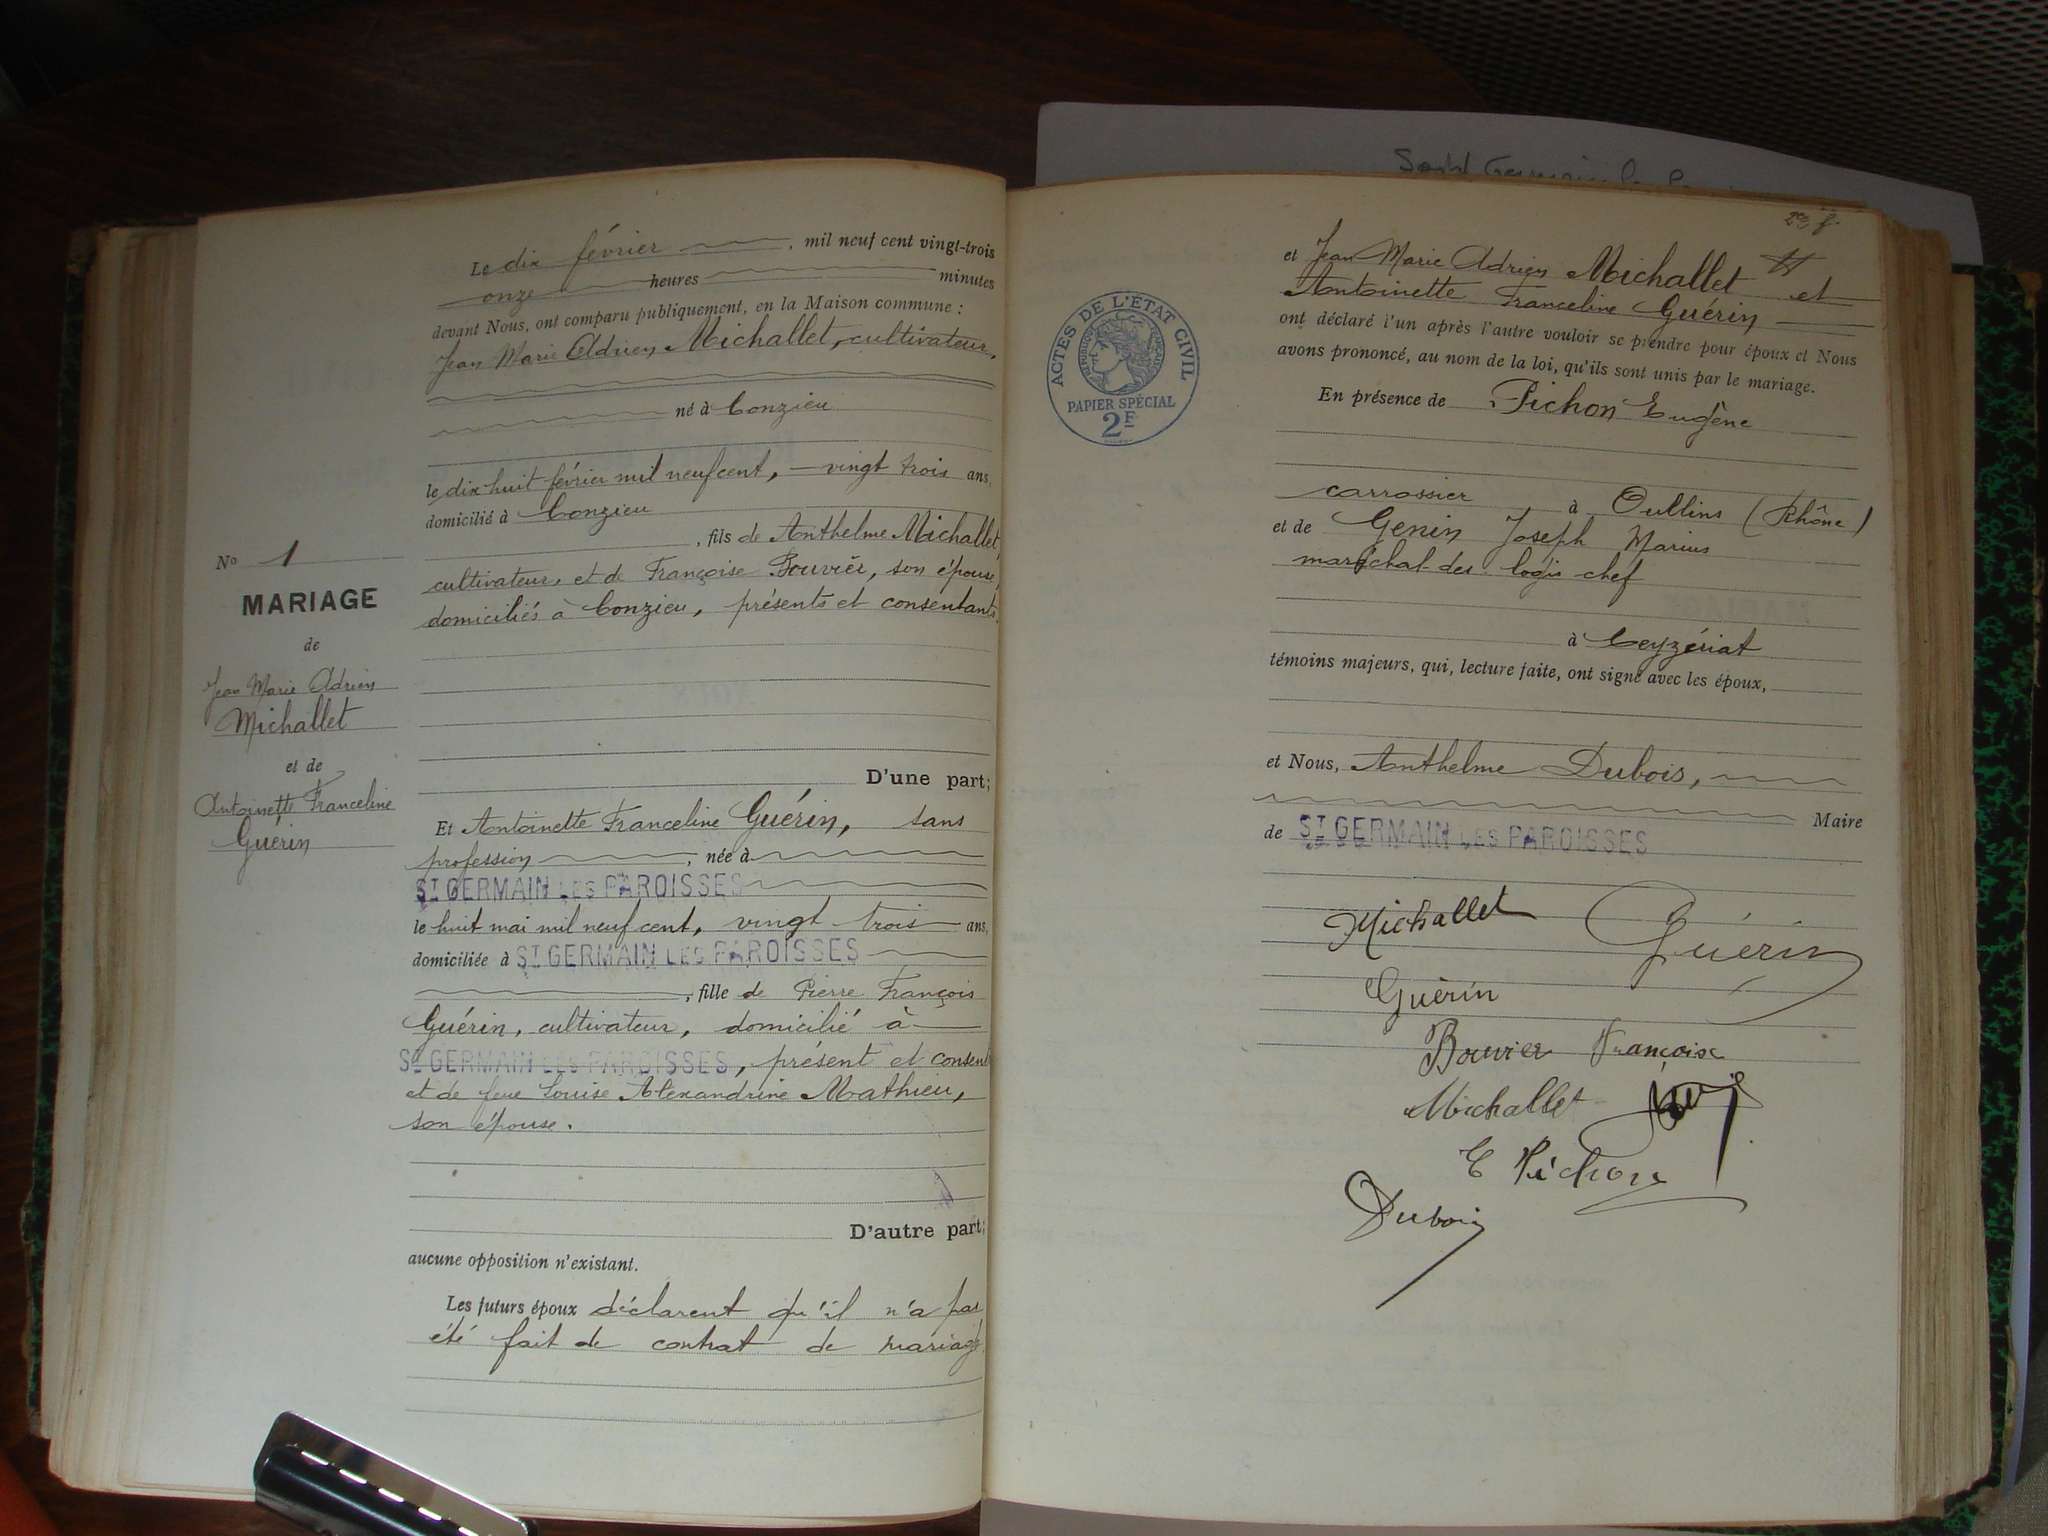 Le dix février, mil neuf cent vingt-trois
onze heures minutes
devant Nous, ont comparu publiquement, en la Maison commune :
Jean Marie Adrien Michallet, cultivateur,
né à Conzieu
le dix huit février mil neuf cent, vingt trois ans,
domicilié à Conzieu
, fils de Anthelme Michallet,
cultivateur, et de Françoise Bouvier, son épouse,
domiciliés à Conzieu, présents et consentants.
D'une part;
Et Antoinette Franceline Guérin, sans
profession, née à
ST GERMAIN LES PAROISSES
le huit mai mil neuf cent, vingt trois ans,
domiciliée à ST GERMAIN LES PAROISSES
, fille de Pierre François
Guérin, cultivateur, domicilié à
ST GERMAIN LES PAROISSES, présent et consent
et de feue Louise Alexandrine Mathieu,
son épouse.
D'autre part;
aucune opposition n'existant.
Les futurs époux déclarent qu'il n'a pas
été fait de contrat de mariage
No 1
MARIAGE
de
Jean Marie Adrien
Michallet
et de
Antoinette Franceline
Guérin
Saint Germain
ACTES DE L'ÉTAT CIVIL
RÉPUBLIQUE FRANÇAISE
PAPIER SPÉCIAL
2F
et Jean Marie Adrien Michallet et
Antoinette Franceline Guérin
ont déclaré l'un après l'autre vouloir se prendre pour époux et Nous
avons prononcé, au nom de la loi, qu'ils sont unis par le mariage.
En présence de Pichon Eugène
carrossier à Oullins (Rhône)
et de Genin Joseph Marius
maréchal des logis chef
à Ceyzériat
témoins majeurs, qui, lecture faite, ont signé avec les époux,
et Nous, Anthelme Dubois,
Maire
de ST GERMAIN LES PAROISSES
Michallet Guérin
Guérin
Bouvier Françoise
Michallet
E Pichon
Dubois